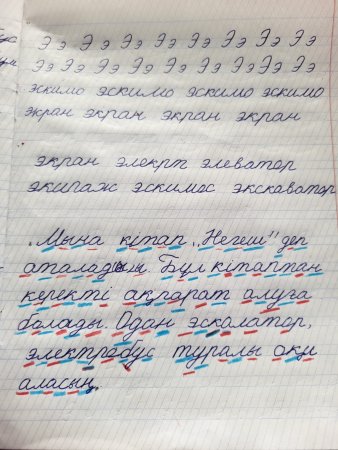 Э э Э э Э э Э э Э э Э э Э э
Э э Э э Э э Э э Э э Э э Э э Э э
эскимо эскимо эскимо эскимо
экран экран экран экран
экран элекрт элеватор
экипаж эскимос экскаватор
„Мына кітап „Негеш" деп
аталады. Бұл кітаптан
керекті ақпарат алуға
болады. Одан эскалатор,
электробус туралы оқи
аласың.